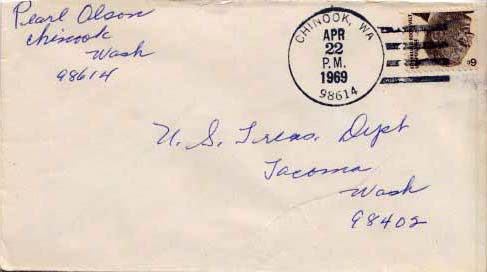 Pearl Olson
Chinook
Wash
98614
CHINOOK, WA
APR
22
P.M.
1969
98614
U. S. Treas. Dept
Tacoma
Wash
98402